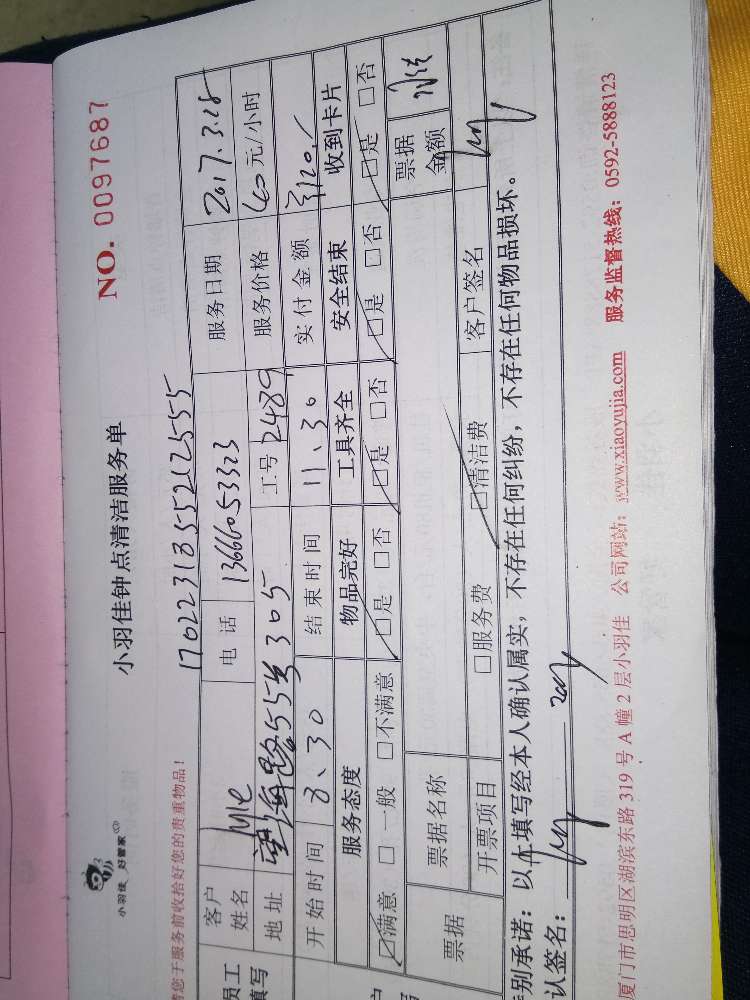 NO. 0097687
小羽佳 好管家
小羽佳钟点清洁服务单
请您于服务前收拾好您的贵重物品！
17022318355212555
客户姓名 Julie 电话 13666053323 服务日期 2017.3.28
地址 望海路55号305 工号 2489 服务价格 元/小时
开始时间 8、30 结束时间 11、30 实付金额
服务态度 物品完好 工具齐全 安全结束 收到卡片
☑满意 □一般 □不满意 ☑是 □否 ☑是 □否 ☑是 □否 ☑是 □否
票据 票据名称 票据金额
开票项目 □服务费 ☑清洁费 客户签名
别承诺：以上填写经本人确认属实，不存在任何纠纷，不存在任何物品损坏。
认签名：
厦门市思明区湖滨东路319号A幢2层小羽佳 公司网站：www.xiaoyujia.com 服务监督热线：0592-5888123
员工
填写